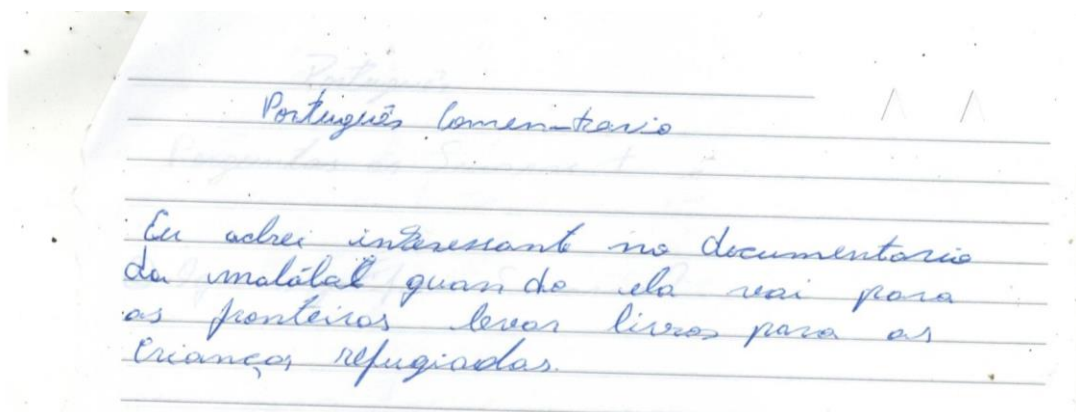 Português Comentario
Eu achei interessante no documentario
da malálal quando ela vai para
as fronteiras levar livros para as
crianças refugiadas.